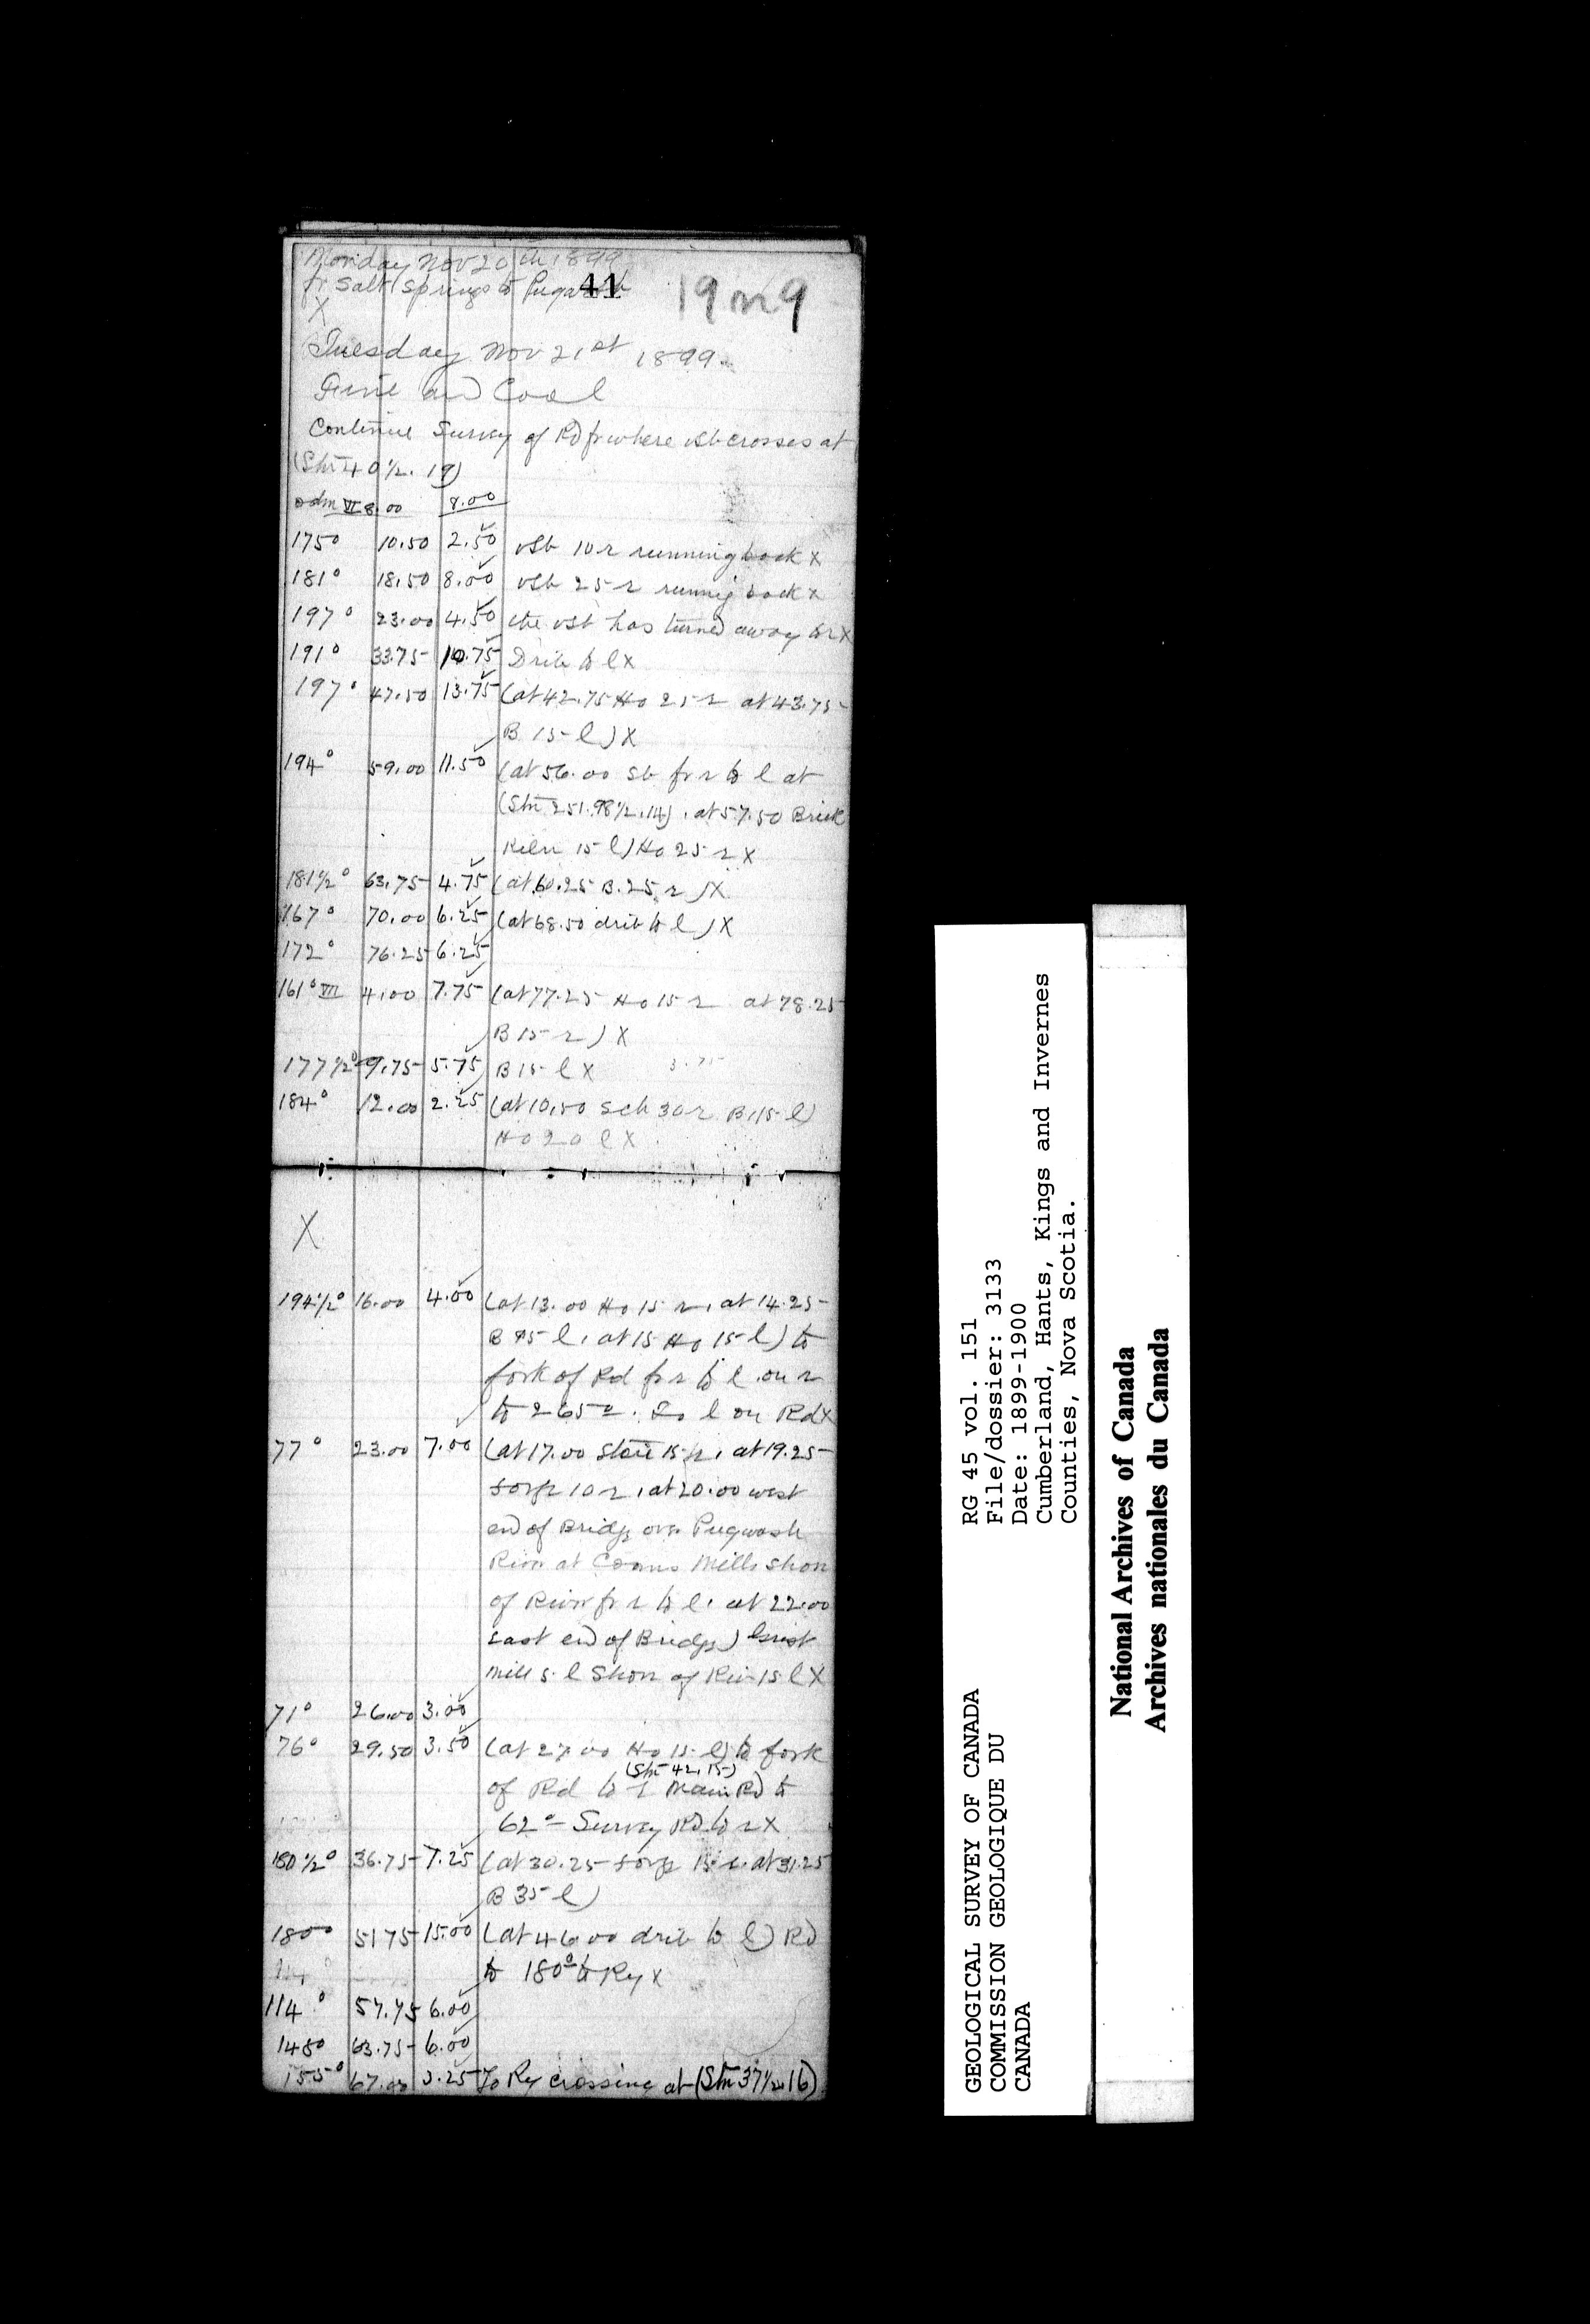 Monday Nov 20th 1899
fr Salt Springs to Pugwash
41
19 m 9
X
Tuesday Nov 21st 1899
Fine and Cool
Continue Survey of Rd fr where vsb crosses at
(Stn 40 1/2. 19)
odm VI 8.00 8.00
175° 10.50 2.50 vsb 10 r running back X
181° 18.50 8.00 vsb 25 r running back X
197° 23.00 4.50 the vsb has turned away to r X
191° 33.75 10.75 Drib to l X
197° 47.50 13.75 (at 42.75 Ho 25 r at 43.75
B 15 l) X
194° 59.00 11.50 (at 56.00 Sb fr r to l at
(Stn 251.98 1/2.14). at 57.50 Brick
Kiln 15 l) Ho 25 r X
181 1/2° 63.75 4.75 (at 60.25 B. 25 r) X
167° 70.00 6.25 (at 68.50 drib to l) X
172° 76.25 6.25
161° VII 4.00 7.75 (at 77.25 Ho 15 r at 78.25
B 15 r) X
177 1/2° 9.75 5.75 B 15 l X
184° 12.00 2.25 (at 10.50 Sch 30 r B. 15 l)
Ho 20 l X
X
194 1/2° 16.00 4.00 (at 13.00 Ho 15 r, at 14.25
B 15 l, at 15 Ho 15 l) to
fork of Rd fr r to l. on r
to 265°. Go l on Rd X
77° 23.00 7.00 (at 17.00 Store 15 r, at 19.25
forge 10 r, at 20.00 west
end of Bridge over Pugwash
River at Mills shore
of River fr r to l. at 22.00
East end of Bridge) Grist
Mill 5 l Shore of Riv 15 l X
71° 26.00 3.00
76° 29.50 3.50 (at 27.00 Ho 15 l) to fork
(Stn 42.15)
of Rd to l Main Rd to
62° Survey Rd to r X
180 1/2° 36.75 7.25 (at 30.25 forge 15 r. at 31.25
B 35 l)
180° 51.75 15.00 (at 46.00 drib to l) Rd
to 180° to Ry X
114° 57.75 6.00
148° 63.75 6.00
155° 67.00 3.25 To Ry crossing at (Stn 37 1/2. 16)
GEOLOGICAL SURVEY OF CANADA
COMMISSION GEOLOGIQUE DU
CANADA
RG 45 vol. 151
File/dossier: 3133
Date: 1899-1900
Cumberland, Hants, Kings and Invernes
Counties, Nova Scotia.
National Archives of Canada
Archives nationales du Canada